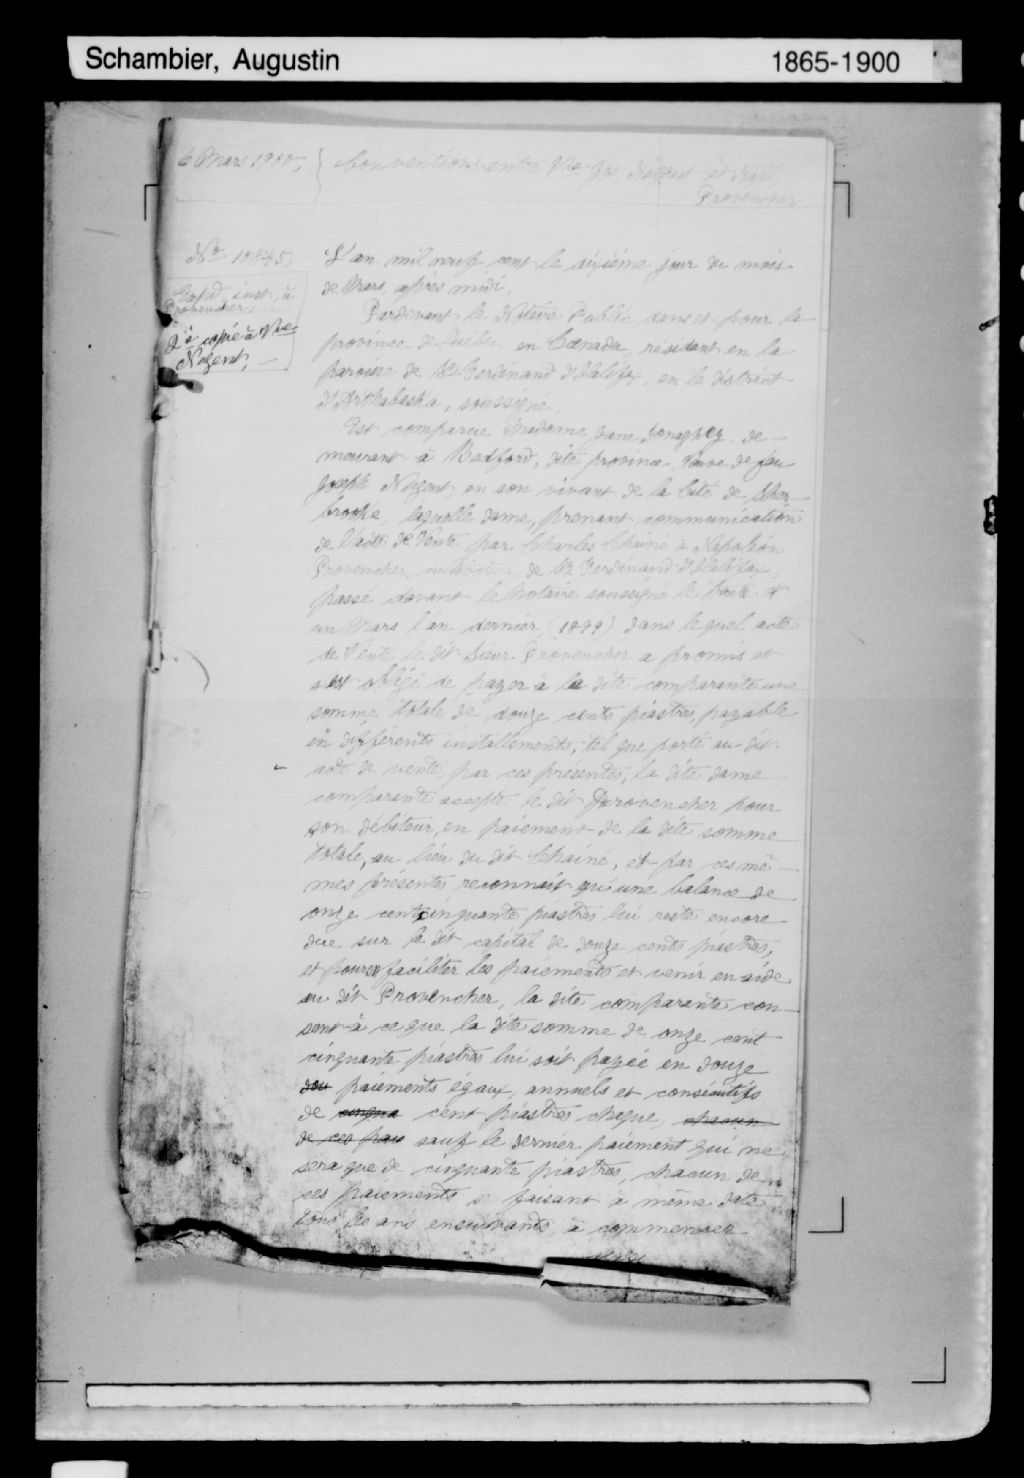 Schambier, Augustin
1865-1900
6 Mars 1900, } Conventions entre Vve Js. Nugent et
Provencher
No 10845,
L'an mil neuf cent le sixième jour du mois
de Mars, après midi,
Expd. inst. à
Provencher,
2e copie à Vve
Nugent, —
Pardevant le Notaire Public dans et pour la
province de Québec, en Canada, résidant en la
paroisse de St Ferdinand d'Halifax, en le district
d'Arthabaska, soussigné,
Est comparue Madame Jane Donaghey, de-
meurant à Bedford, dite province, Veuve de feu
Joseph Nugent, en son vivant de la Cité de Sher-
brooke, laquelle dame, prenant communication
de l'acte de Vente par Charles Chainé à Napoléon
Provencher, cultivateur, de St Ferdinand d'Halifax,
passé devant le Notaire soussigné le trente et
un Mars l'an dernier, (1899) dans lequel acte
de Vente le dit Sieur Provencher a promis et
s'est obligé de payer à la dite comparante une
somme totale de douze cents piastres, payable
en différents installements, tel que porté au dit
acte de vente, par ces présentes, la dite dame
comparante accepte le dit Provencher pour
son débiteur, en paiement de la dite somme
totale, au lieu du dit Chainé, et par ces mê-
mes présentes reconnait qu'une balance de
onze cent cinquante piastres lui reste encore
due sur le dit capital de douze cents piastres,
et pour en faciliter les paiements et venir en aide
au dit Provencher, la dite comparante con-
sent à ce que la dite somme de onze cent
cinquante piastres lui soit payée en douze
dou paiements égaux, annuels et consécutifs
de cinqua cent piastres chaque, chacun
de ces paie sauf le dernier paiement qui ne
sera que de cinquante piastres, chacun de
ces paiements se faisant à même date
tous les ans ensuivants, à commencer